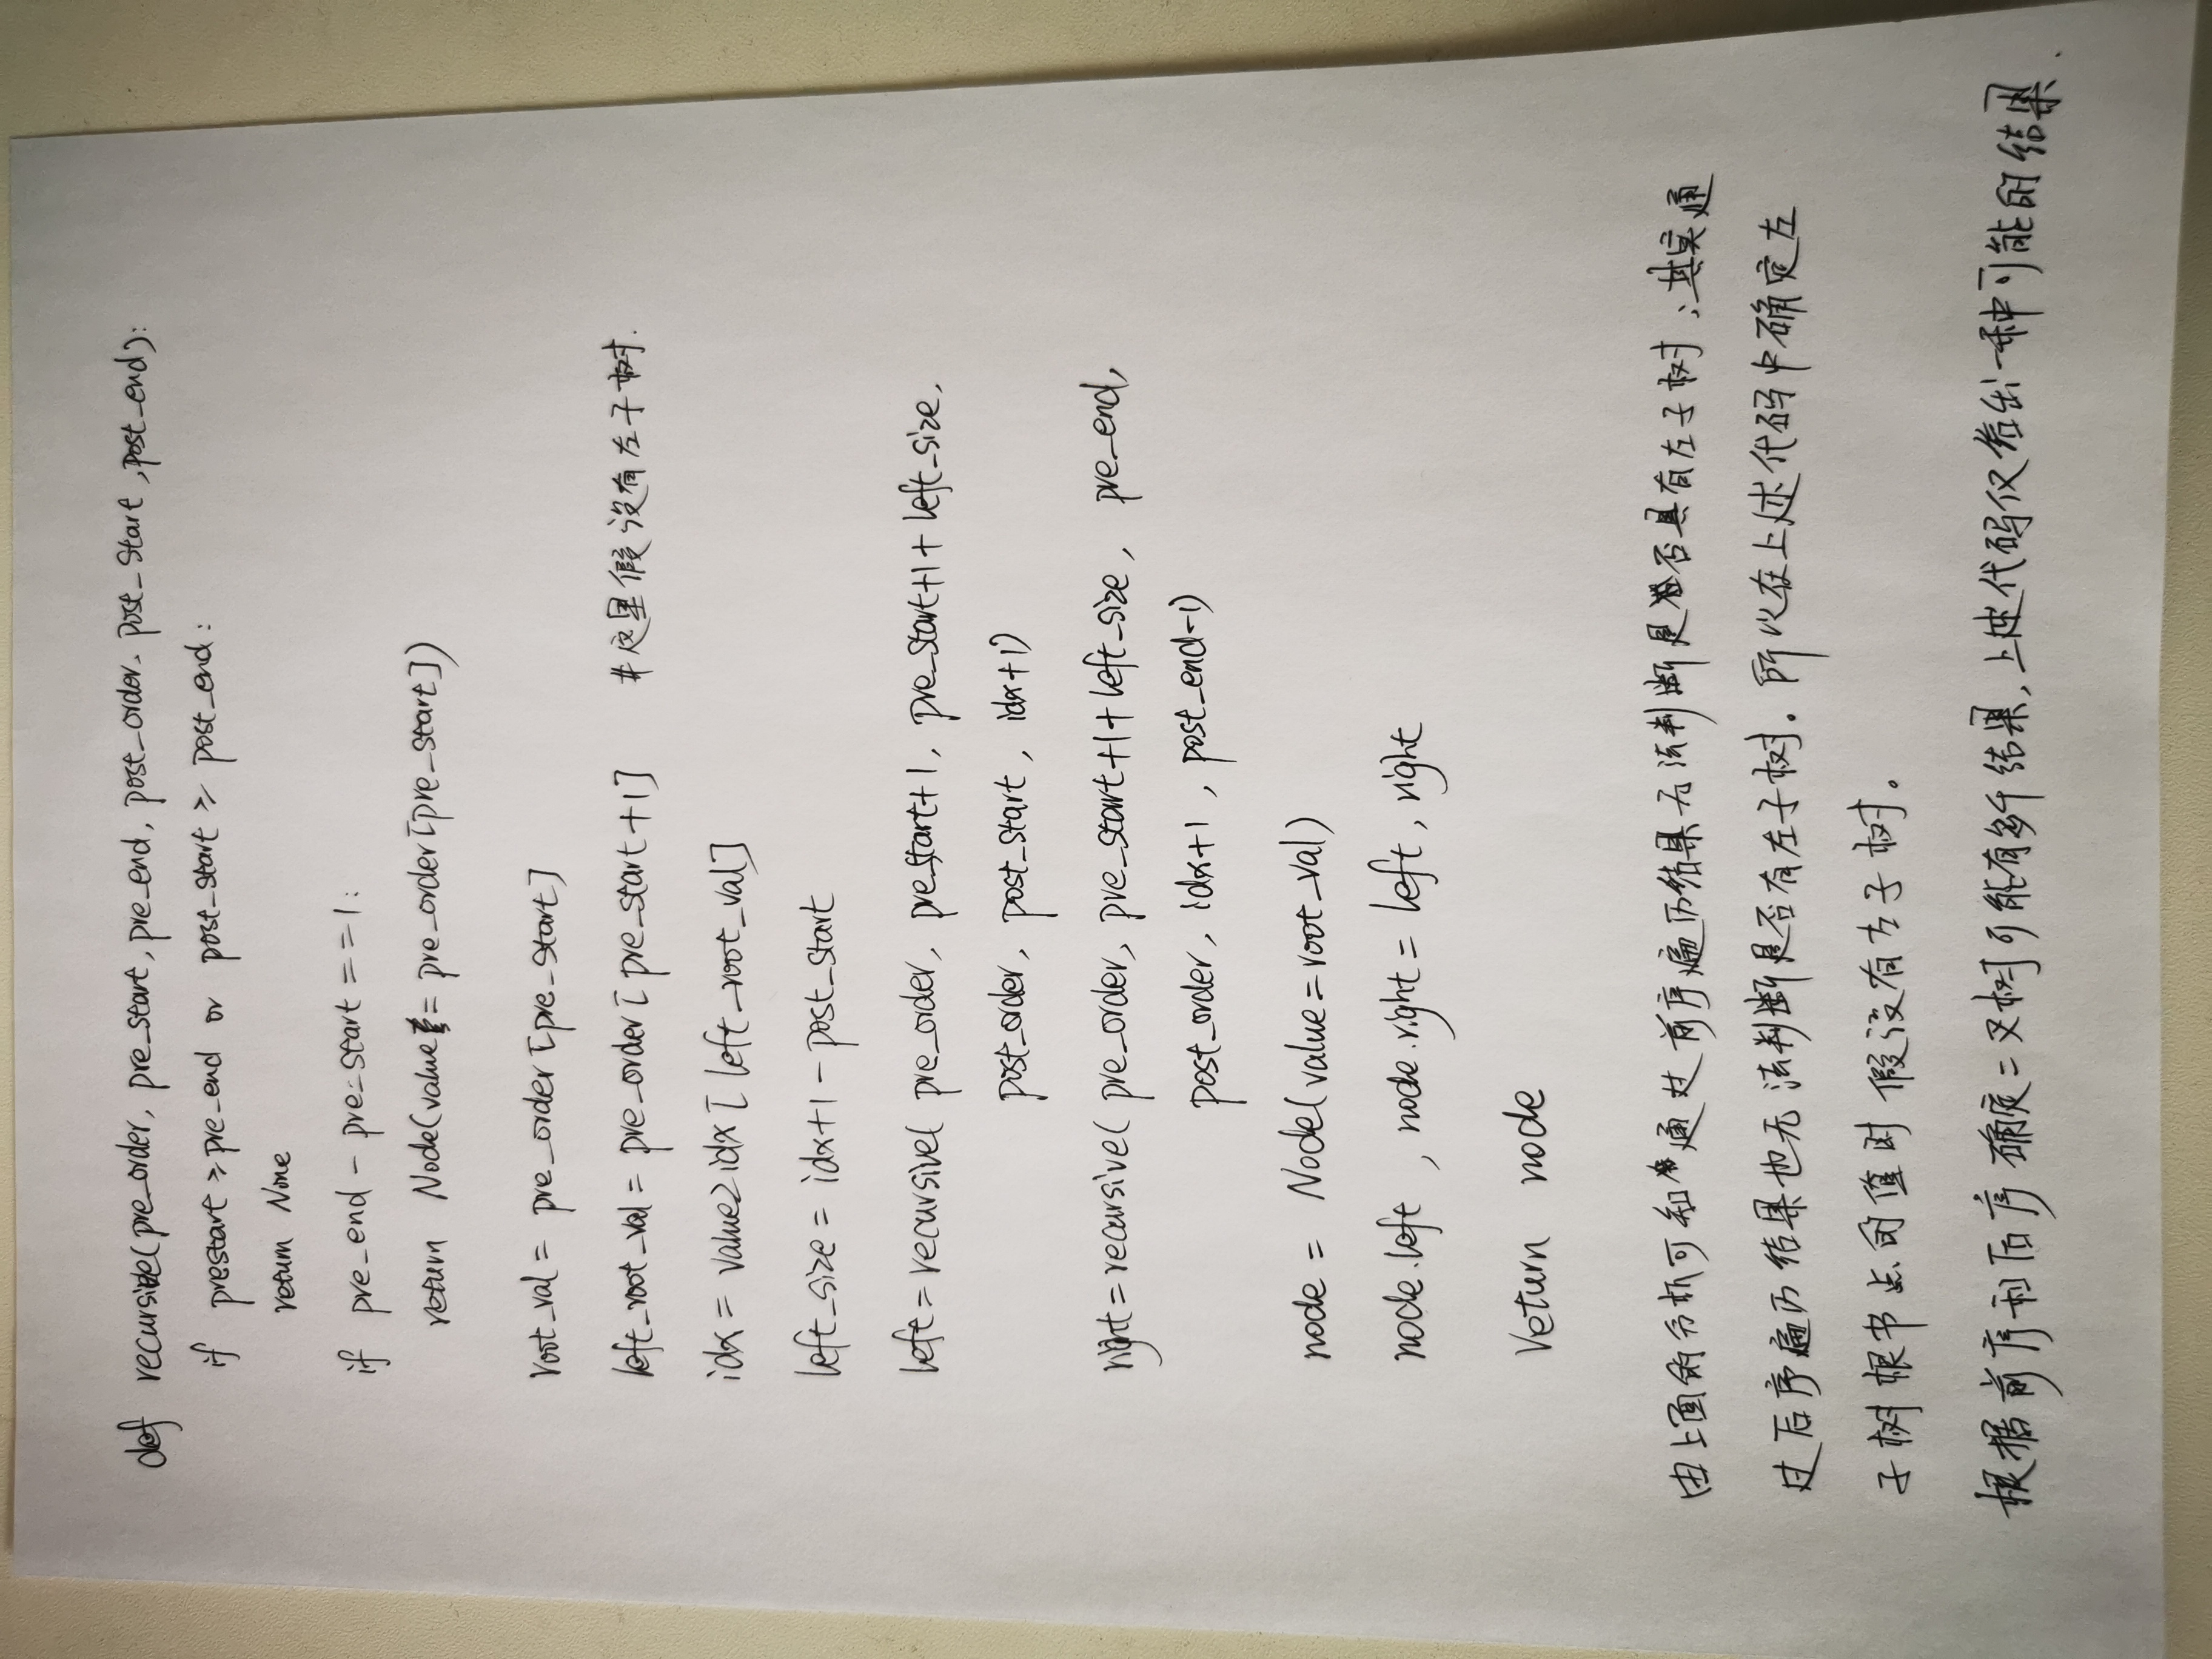 def recursive(pre_order, pre_start, pre_end, post_order, post_start, post_end):
if prestart ≥ pre_end or post_start ≥ post_end:
return None
if pre_end - pre_start == 1:
return Node(value = pre_order[pre_start])
root_val = pre_order[pre_start]
left_root_val = pre_order[pre_start+1] #这里假设有左子树.
idx = value2idx[left_root_val]
left_size = idx+1 - post_start
left = recursive( pre_order, pre_start+1, pre_start+1+left_size,
post_order, post_start, idx+1)
right = recursive( pre_order, pre_start+1+left_size, pre_end,
post_order, idx+1, post_end-1)
node = Node(value=root_val)
node.left , node.right = left, right
return node
由上面的分析可知通过前序遍历结果无法判断是否具有左子树;其实通
过后序遍历结果也无法判断是否有左子树。所以在上述代码中确定左
子树根节点的值时假设有左子树。
根据前序和后序确定二叉树可能有多个结果,上述代码仅给出一种可能的结果.